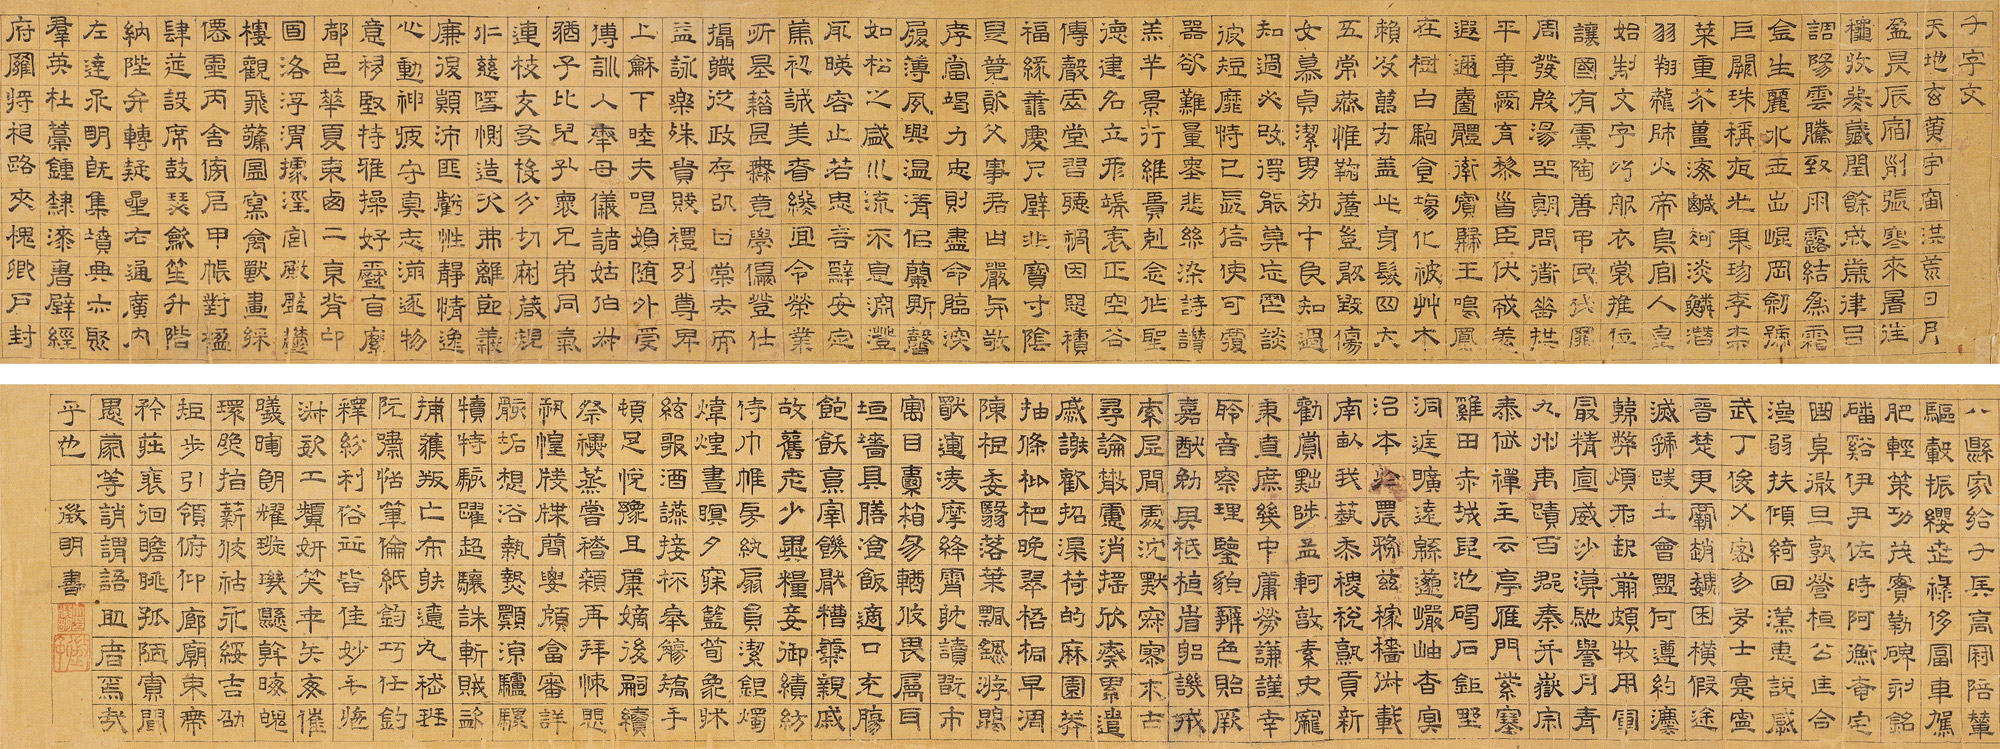 千字文
天地玄黃宇宙洪荒日月
盈昃辰宿列張寒來暑往
穐收冬藏閏餘成歲律呂
調陽雲騰致雨露結為霜
金生麗水玉出崐岡劒號
巨闕珠稱夜光果珍李柰
菜重芥薑海鹹河淡鱗潛
羽翔龍師火帝鳥官人皇
始制文字乃服衣裳推位
讓國有虞陶唐弔民伐罪
周發殷湯坐朝問道垂拱
平章愛育黎首臣伏戎羌
遐邇壹體率賓歸王鳴鳳
在樹白駒食場化被艸木
賴及萬方蓋此身髮四大
五常恭惟鞠養豈敢毀傷
女慕貞潔男効才良知過
知過必改得能莫忘罔談
彼短靡恃己長信使可覆
器欲難量墨悲絲染詩讚
羔羊景行維賢剋念作聖
德建名立形端表正空谷
傳聲虛堂習聽禍因惡積
福緣善慶尺璧非寶寸陰
是競資父事君曰嚴與敬
孝當竭力忠則盡命臨深
履薄夙興溫凊似蘭斯馨
如松之盛川流不息淵澄
取暎容止若思言辭安定
篤初誠美慎終宜令榮業
所基籍甚無竟學優登仕
攝職從政存以甘棠去而
益詠樂殊貴賤禮別尊卑
上龢下睦夫唱婦隨外受
傅訓入奉母儀諸姑伯叔
猶子比兒孔懷兄弟同氣
連枝交友投分切磨箴規
仁慈隱惻造次弗離節義
廉退顛沛匪虧性靜情逸
心動神疲守真志滿逐物
意移堅持雅操好爵自縻
都邑華夏東西二京背邙
面洛浮渭據涇宮殿盤鬱
樓觀飛驚圖寫禽獸畫綵
僊靈丙舍傍启甲帳對楹
肆筵設席鼓瑟龡笙升階
納陛弁轉疑星右通廣內
左達承明既集墳典亦聚
羣英杜藁鍾隸漆書壁經
府羅將相路夾槐卿戶封
八縣家給千兵高冠陪輦
驅轂振纓世祿侈富車駕
肥輕策功茂實勒碑刻銘
磻谿伊尹佐時阿衡奄宅
曲阜微旦孰營桓公匡合
濟弱扶傾綺回漢惠說感
武丁俊乂密勿多士寔寧
晉楚更霸趙魏困橫假途
滅虢踐土會盟何遵約灋
韓弊煩刑起翦頗牧用軍
最精宣威沙漠馳譽丹青
九州禹蹟百郡秦并嶽宗
泰岱禪主云亭雁門紫塞
雞田赤城昆池碣石鉅野
洞庭曠遠緜邈巖岫杳冥
治本於農務茲稼穡俶載
南畝我藝黍稷稅熟貢新
勸賞黜陟孟軻敦素史
秉直庶幾中庸勞謙謹
聆音察理鑒貌辨色貽厥
嘉猷勉其祗植省躬譏誡
索居閒處沈默寂寥求古
尋論散慮消搖欣奏累遣
慼謝歡招渠荷的歷園莽
抽條枇杷晚翠梧桐早凋
陳根委翳落葉飄颻游鵾
獨運凌摩絳霄耽讀翫市
寓目囊箱易輶攸畏屬耳
垣墻具膳飡飯適口充腸
飽飫烹宰饑猒糟糠親戚
故舊老少異糧妾御績紡
侍巾帷房紈扇員潔銀燭
煒煌晝瞑夕寐藍筍象牀
絃歌酒讌接杯舉觴矯手
頓足悅豫且康嫡後嗣續
祭祀蒸嘗稽顙再拜悚愳
恐惶牋牒簡要顧答審詳
骸垢想浴執熱願涼驢騾
犢特駭躍超驤誅斬賊盜
捕獲叛亡布射遼丸嵇琴
阮嘯恬筆倫紙鈞巧任釣
釋紛利俗並皆佳妙毛施
淑姿工顰妍笑年矢每催
曦暉朗耀璇璣懸斡晦魄
環照指薪修祜永綏吉劭
矩步引領俯仰廊廟束帶
矜莊裴徊瞻眺孤陋寡聞
愚蒙等誚謂語助者焉哉
乎也 徵明書